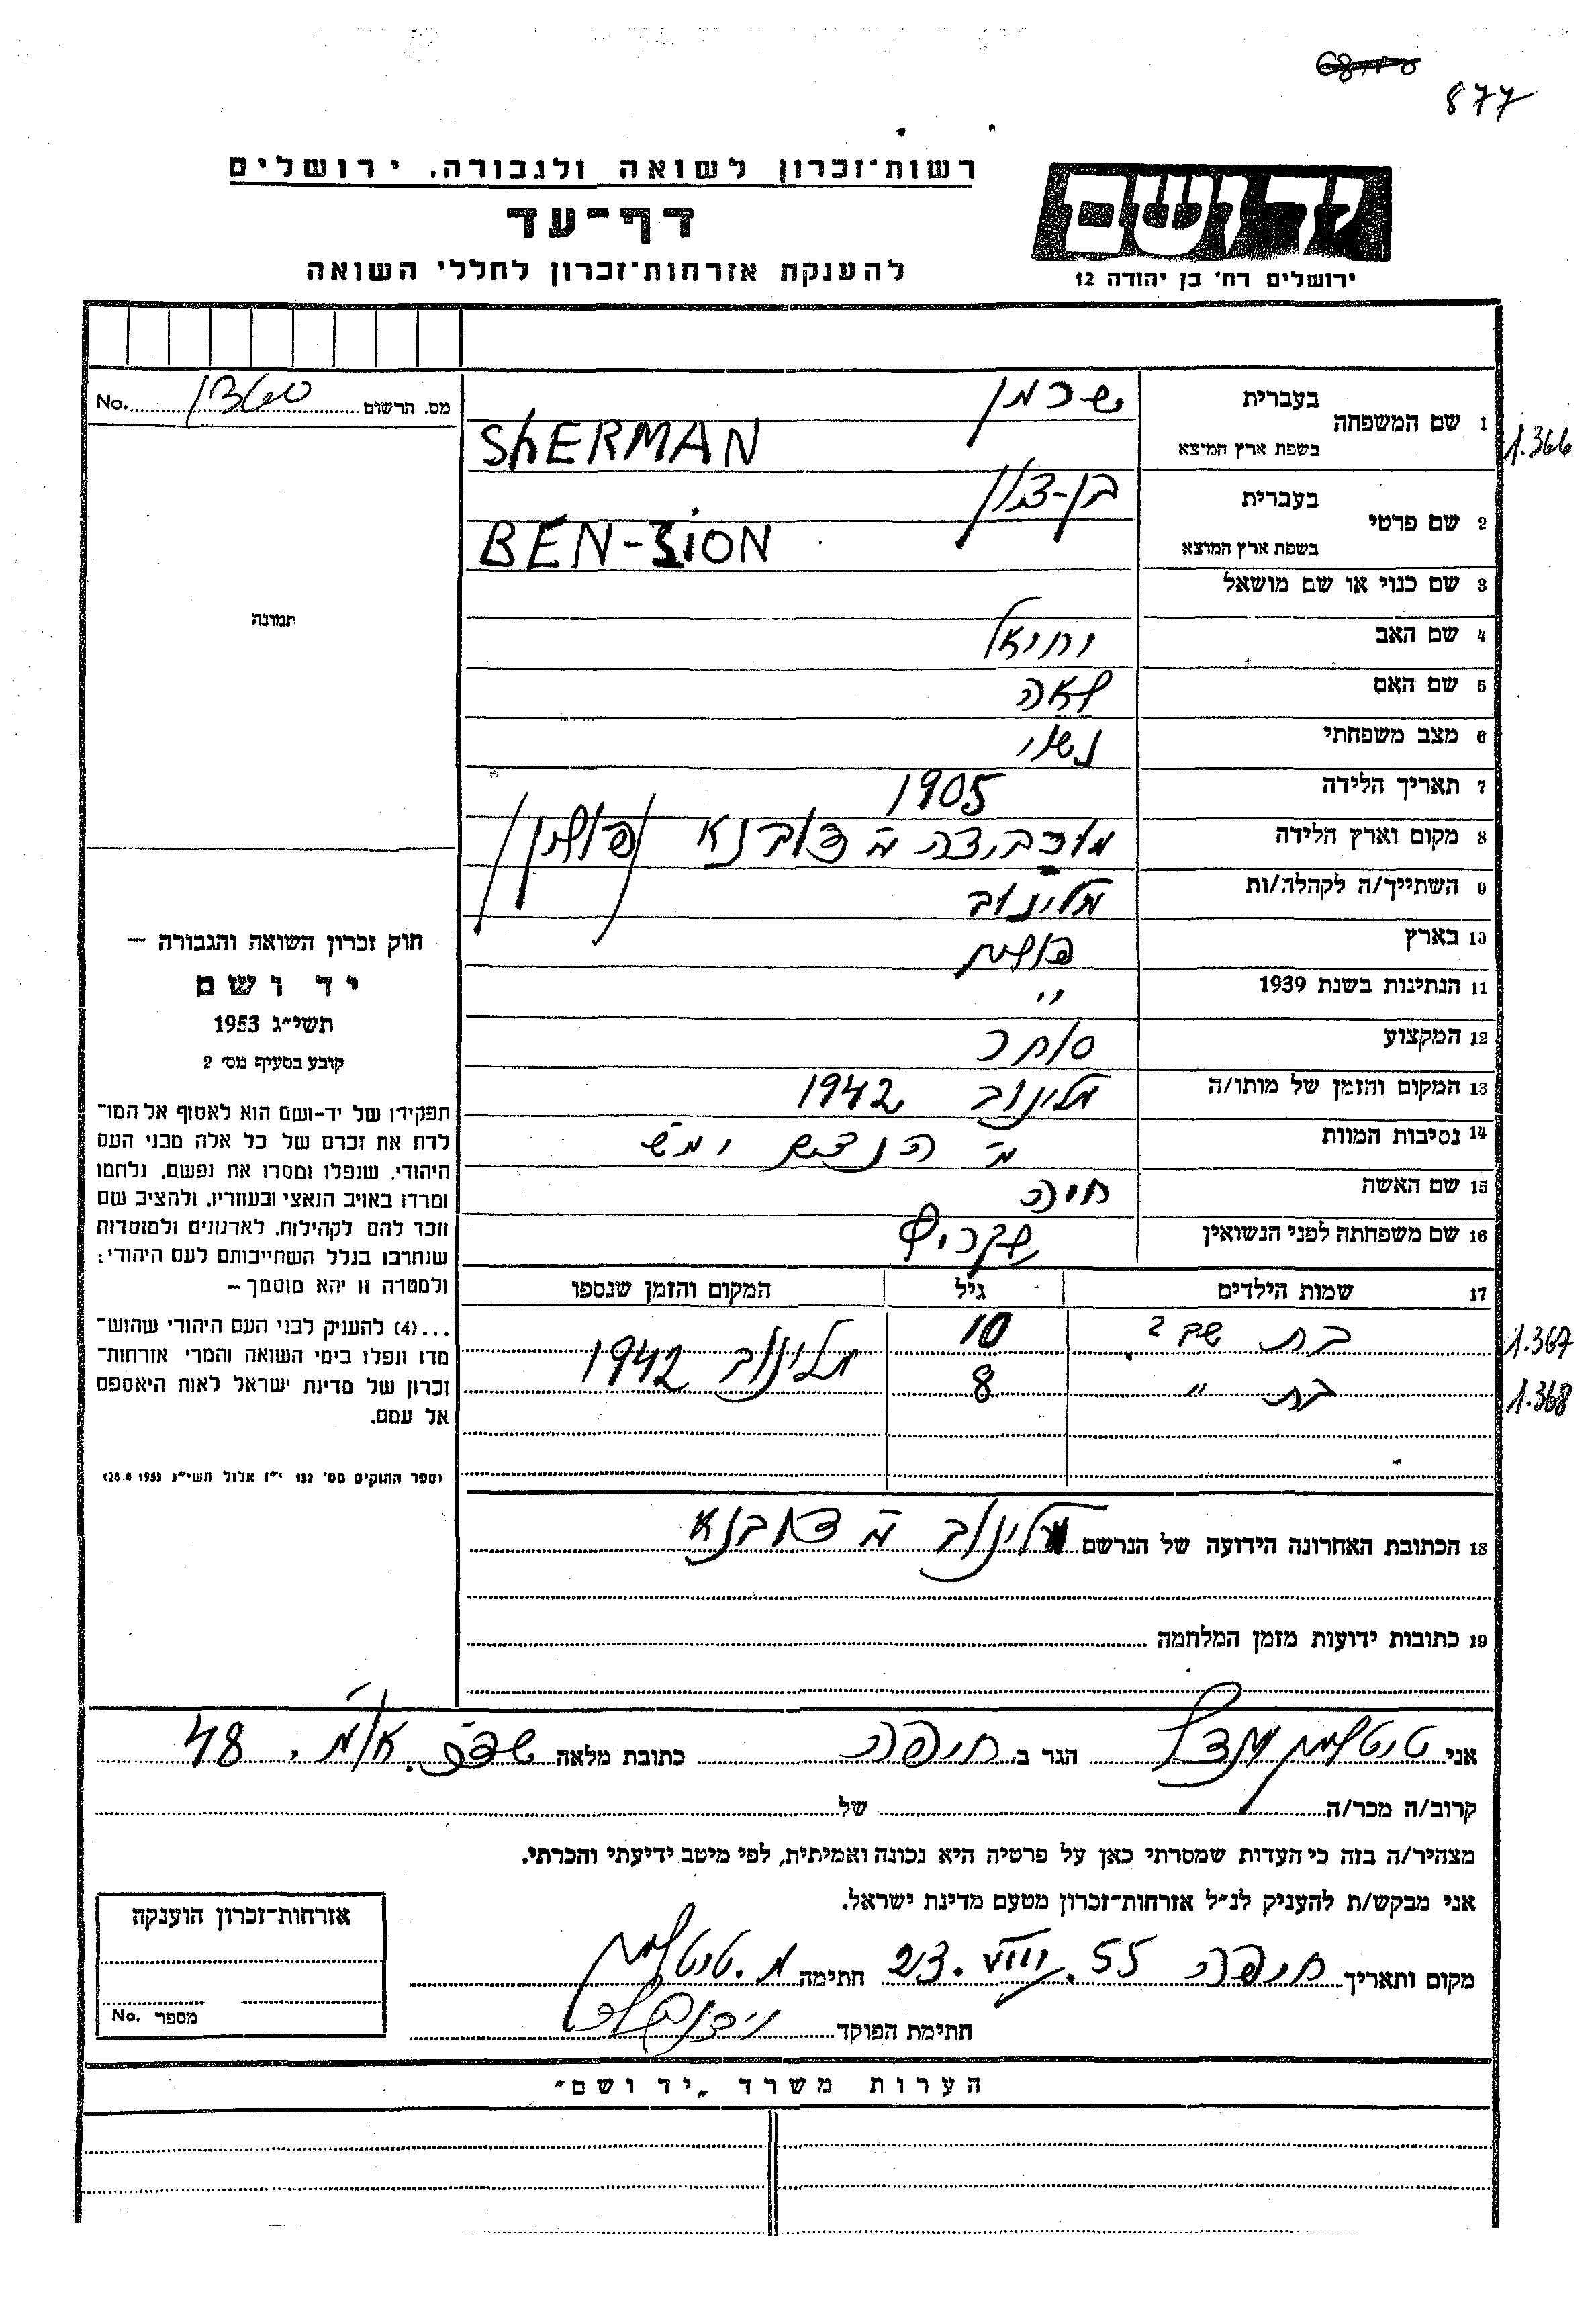 877
רשות־זכרון לשואה ולגבורה, ירושלים
דף־עד
להענקת אזרחות־זכרון לחללי השואה
יד ושם
ירושלים רח' בן יהודה 12
מס. הרשום No.
1 שם המשפחה בעברית שרמן
בשפת ארץ המוצא ShERMAN
1.366
2 שם פרטי בעברית בן-ציון
בשפת ארץ המוצא BEN-ZiON
3 שם כנוי או שם מושאל
תמונה
4 שם האב יחיאל
5 שם האם לאה
6 מצב משפחתי נשוי
7 תאריך הלידה 1905
8 מקום וארץ הלידה דובנא /פולין/
9 השתייך/ה לקהלה/ות מלינוב
10 בארץ פולין
11 הנתינות בשנת 1939 "
12 המקצוע סוחר
13 המקום והזמן של מותו/ה מלינוב 1942
14 נסיבות המוות ע"י הנאצים ימ"ש
15 שם האשה חיה
16 שם משפחתה לפני הנשואין
17 שמות הילדים גיל המקום והזמן שנספו
בת שם ? 10 מלינוב 1942
1.367
בת " 8
1.368
חוק זכרון השואה והגבורה –
יד ושם
תשי"ג 1953
קובע בסעיף מס' 2
תפקידו של יד-ושם הוא לאסוף אל המו־
לדת את זכרם של כל אלה מבני העם
היהודי, שנפלו ומסרו את נפשם, נלחמו
ומרדו באויב הנאצי ובעוזריו, ולהציב שם
וזכר להם לקהילות, לארגונים ולמוסדות
שנחרבו בגלל השתייכותם לעם היהודי;
ולמטרה זו יהא מוסמך –
...(4) להעניק לבני העם היהודי שהוש־
מדו ונפלו בימי השואה והמרי אזרחות־
זכרון של מדינת ישראל לאות היאספם
אל עמם.
(ספר החוקים מס' 132 י"ז אלול תשי"ג 28.8.1953)
18 הכתובת האחרונה הידועה של הנרשם מלינוב ע"י דובנא
19 כתובות ידועות מזמן המלחמה
אני טיטלמן מנדל הגר ב. חיפה כתובת מלאה 48
קרוב/ה מכר/ה של
מצהיר/ה בזה כי העדות שמסרתי כאן על פרטיה היא נכונה ואמיתית, לפי מיטב ידיעתי והכרתי.
אני מבקש/ת להעניק לנ"ל אזרחות־זכרון מטעם מדינת ישראל.
מקום ותאריך חיפה 23.VIII.55 חתימה מ. טיטלמן
חתימת הפוקד
אזרחות־זכרון הוענקה
מספר No.
הערות משרד „יד ושם"